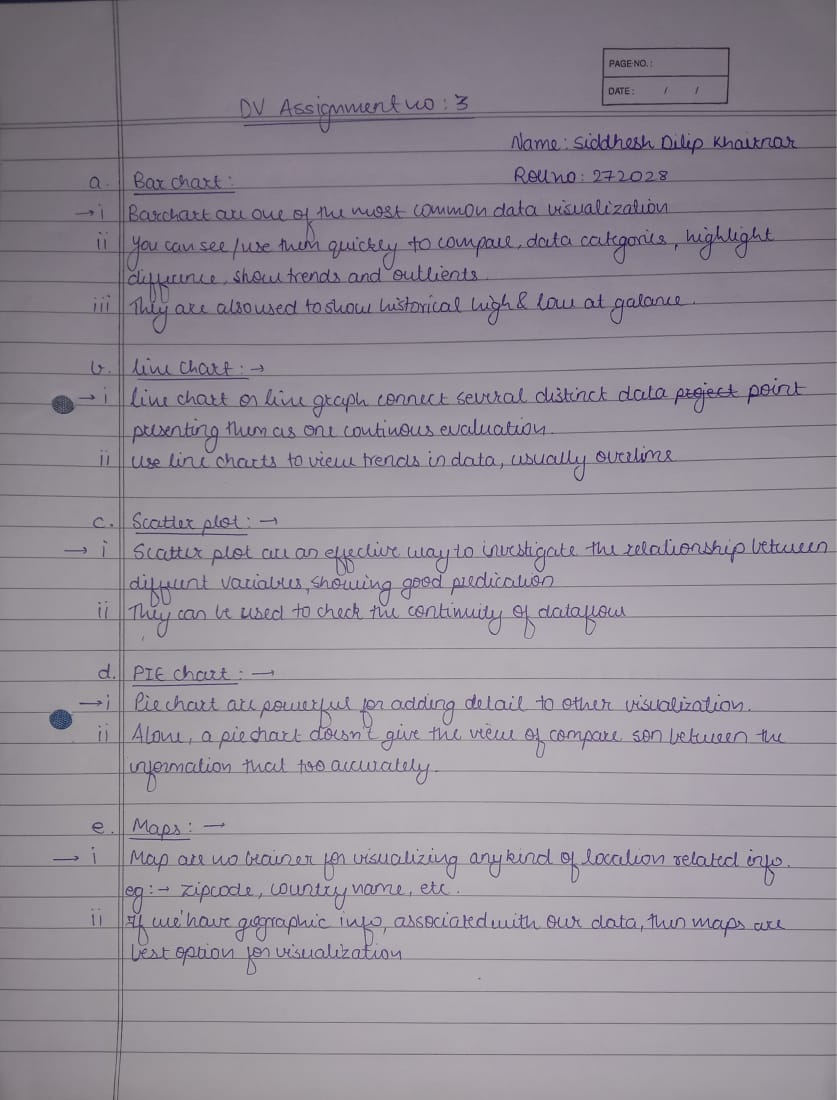 PAGE NO. :
DATE : / /
DV Assignment no : 3
Name: Siddhesh Dilip Khairnar
Roll no: 272028
a. Bar chart :
→ i Barchart are one of the most common data visualization
ii You can see / use them quickly to compare, data categories, highlight
difference, show trends and outlients
iii They are also used to show historical high & low at galance.
b. line chart : →
→ i line chart or line graph connect several distinct data project point
presenting them as one continous evaluation
ii use line charts to view trends in data, usually overtime
c. Scatter plot : →
→ i Scatter plot are an effective way to investigate the relationship between
different variables, showing good predication
ii They can be used to check the continuity of dataflow
d. PIE chart : →
→ i Pie chart are powerful for adding detail to other visualization.
ii Alone, a pie chart doesn't give the view of compare son between the
information that too accurately.
e. Maps : →
→ i Map are no brainer for visualizing any kind of location related info.
eg :→ zipcode, country name, etc.
ii If we have geographic info, associated with our data, then maps are
best option for visualization